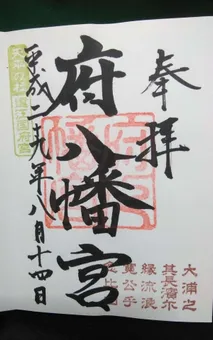 奉拝
府八幡宮
平成二十九年八月十四日
大浦之
其長濱尓
縁流浪
寛公乎